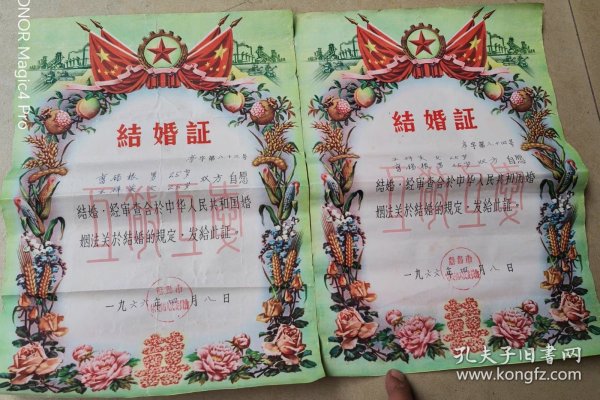 HONOR Magic4 Pro
結婚証
字第八十二号
男 25岁
双方自愿
結婚·經审查合於中华人民共和国婚
姻法关於結婚的規定·发給此証·
一九六六年四月八日
結婚証
字第八十二号
女 25岁
男 25岁 双方自愿
結婚·經审查合於中华人民共和国婚
姻法关於結婚的規定·发給此証·
一九六六年四月八日
孔夫子旧书网
www.kongfz.com